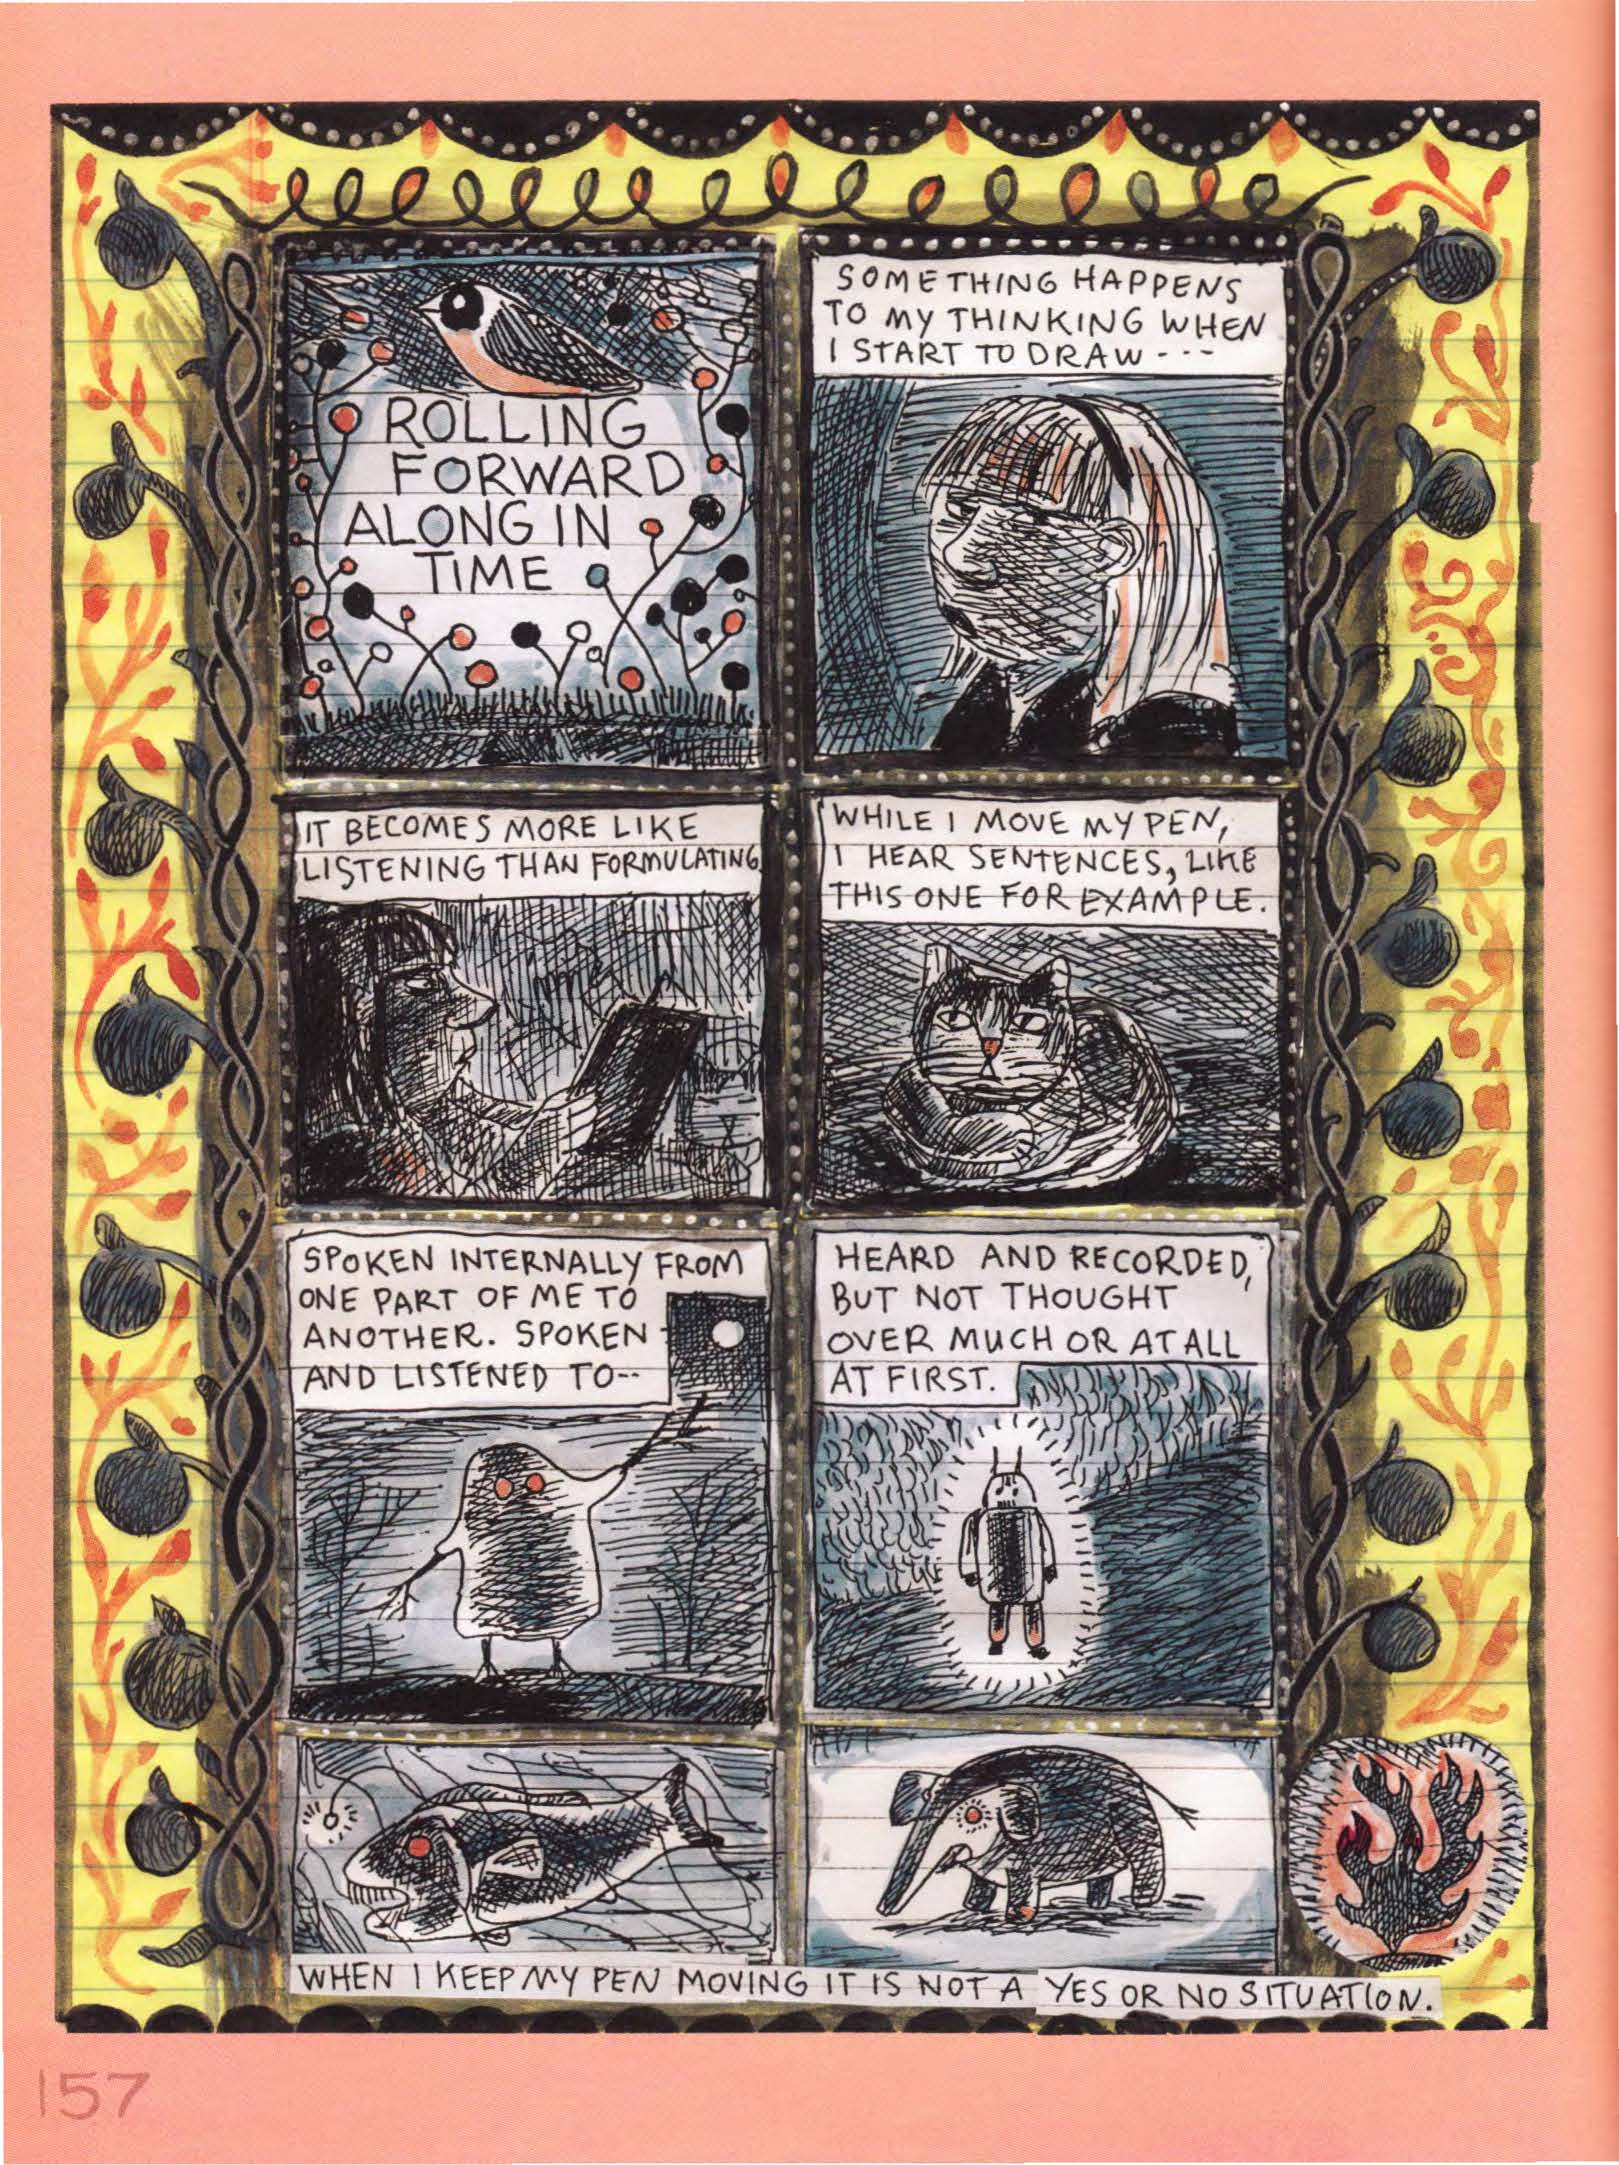 ROLLING
FORWARD
ALONG IN
TIME
SOMETHING HAPPENS
TO MY THINKING WHEN
I START TO DRAW - - -
IT BECOMES MORE LIKE
LISTENING THAN FORMULATING
WHILE I MOVE MY PEN,
I HEAR SENTENCES, LIKE
THIS ONE FOR EXAMPLE.
SPOKEN INTERNALLY FROM
ONE PART OF ME TO
ANOTHER. SPOKEN
AND LISTENED TO--
HEARD AND RECORDED,
BUT NOT THOUGHT
OVER MUCH OR AT ALL
AT FIRST.
WHEN I KEEP MY PEN MOVING IT IS NOT A YES OR NO SITUATION.
157